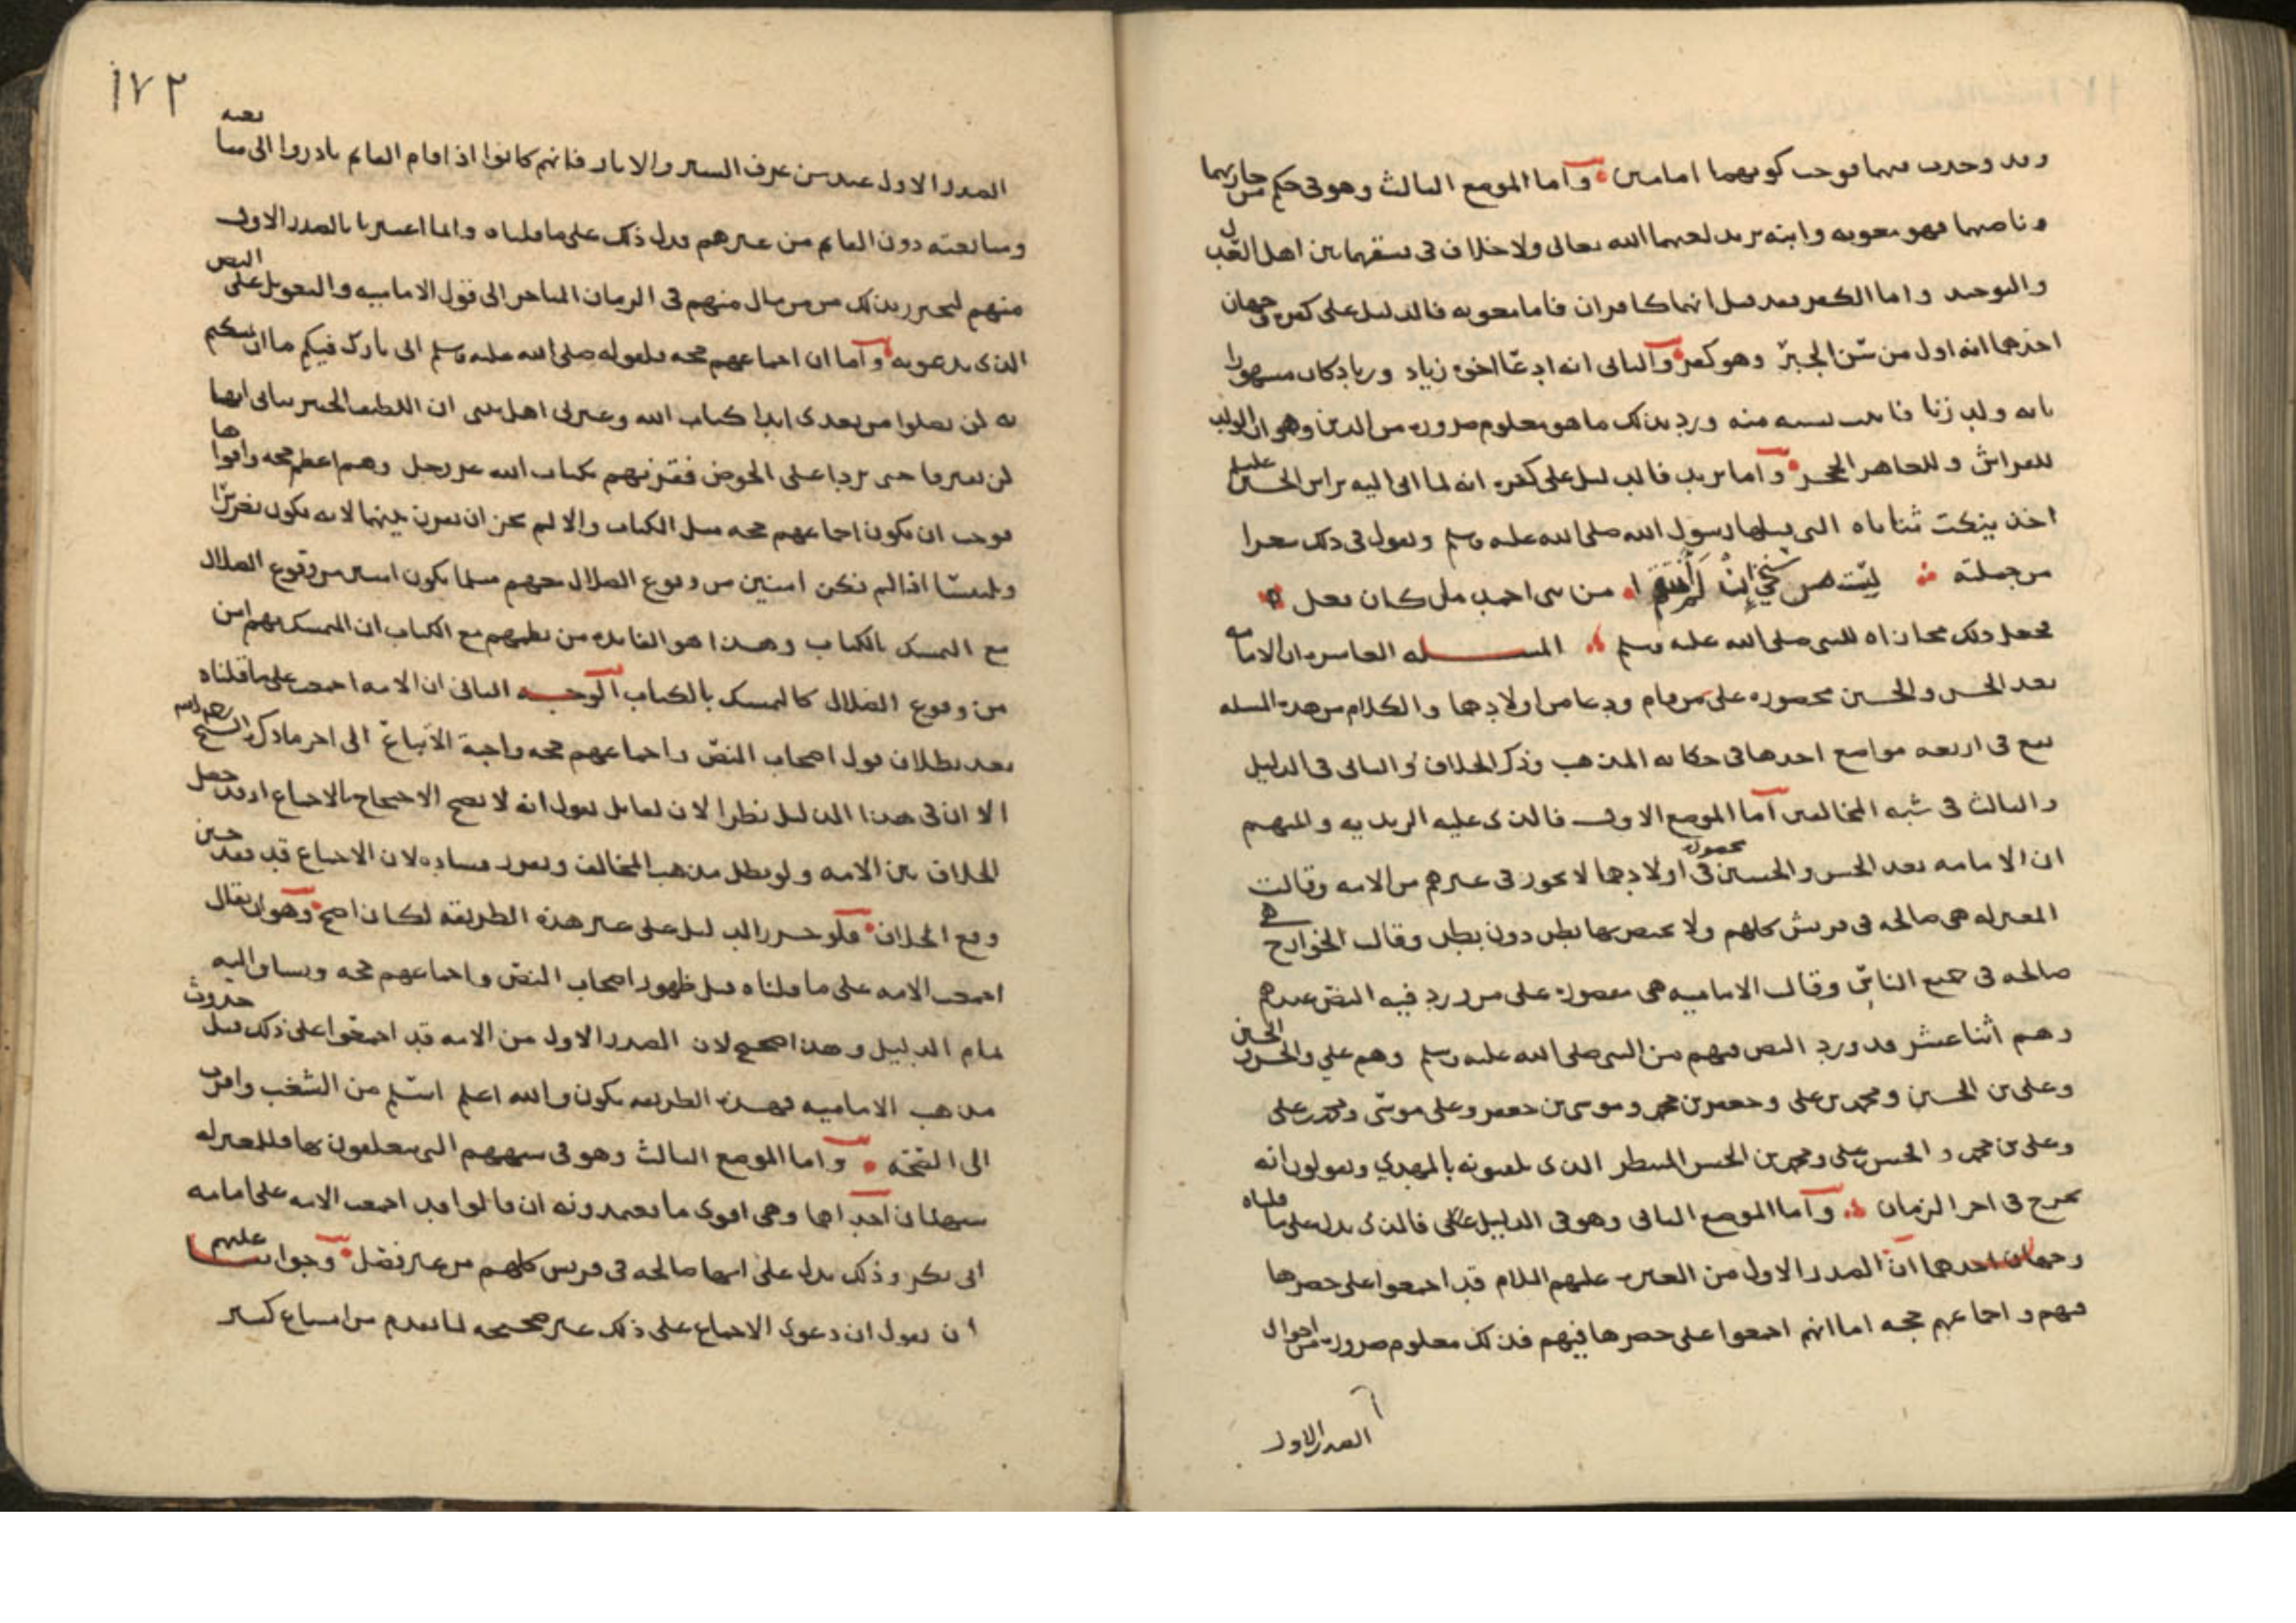 وقد وجدت فيهما فوجب كونهما امامين وأما الموضع الثالث وهو في حكم من حاربهما
وناصبهما فهو معويه وابنه يزيد لعنهما الله تعالى ولا خلاف في فسقهما بين اهل العدل
والتوحيد واما الكفر فقد قيل انهما كافران فاما معويه فالدليل على كفره جهان
احدهما انه اول من سن الجبر وهو كفر والثاني انه ادعا اخوه زياد وزياد كان مشهورا
بانه ولد زنا فاثبت نسبه منه ورد بذلك ما هو معلوم ضروره من الدين وهو ان الولد
للفراش وللعاهر الحجر وأما يزيد فالدليل على كفره انه لما اتى اليه براس الحسين عليلم
اخذ ينكت ثناياه التي يقبلها رسول الله صلى الله عليه وسلم ويقول في ذلك شعرا
من جملته لست من شيخي إن لم أنتقم من بني احمد ما كان فعل
فجعل ذلك مجازاه للنبي صلى الله عليه وسلم المسله العاسره ان الامامه
بعد الحسن والحسين محصوره على من قام ودعا من اولادهما والكلام من هذه المسله
يقع في اربعه مواضع احدها في حكايه المذهب وذكر الخلاف والثاني في الدليل
والثالث في شبه المخالفين أما الموضع الاول فالذي عليه الزيديه
ان الامامه بعد الحسن والحسين محصوره في اولادهما لا تجوز في غيرهم من الامه وقالت
المعتزله هي صالحه في قريش كلهم ولا يختص بها بطن دون بطن وقالت الخوارج هي
صالحه في جميع الناس وقالت الاماميه هي مقصوره على من ورد فيه النص عندهم
وهم اثنا عشر قد ورد النص فيهم من النبي صلى الله عليه وسلم وهم علي والحسن والحسين
وعلى بن الحسين ومحمد بن على وجعفر بن محمد وموسى بن جعفر وعلى موسى ومحمد بن على
وعلى بن محمد والحسن بن على ومحمد بن الحسن المنتظر الذي يلقبونه بالمهدي ويقولون انه
يخرج في اخر الزمان وأما الموضع الثاني وهو في الدليل فالذي يدل على ما قلناه
وجهان احدهما ان الصدر الاول من العتره عليهم السلام قد اجمعوا على حصرها
فيهم واجماعهم حجه اما انهم اجمعوا على حصرها فيهم فذلك معلوم ضروره من احوال
الصدر الاول
١٧٢
الصدر الاول عند من عرف السير والاثار فانهم كانوا اذا قام القايم بادروا الى مبايعته
ومتابعته دون القايم من غيرهم فدل ذلك على ما قلناه وانما اعتبرنا بالصدر الاول
منهم لنحترز بذلك من من مال منهم في الزمان المتاخر الى قول الاماميه والتعويل على النص
الذي يدعونه وأما ان اجماعهم حجه فلقوله صلى الله عليه وسلم اني تارك فيكم ما ان تمسكتم
به لن تضلوا من بعدي ابدا كتاب الله وعترتي اهل بيتي ان اللطيف الخبير نباني انهما
لن يفترقا حتى يردا على الحوض فقرنهم بكتاب الله عز وجل وهم اعظم حجه واقواها
فوجب ان يكون اجماعهم حجه مثل الكتاب والا لم يجز ان يقرن بينهما لانه يكون تغريرا
وتلبيسا اذا لم نكن امنين من وقوع الضلال منهم مثلما نكون امنين من وقوع الضلال
مع التمسك بالكتاب وهذا هو الفايده من نظمهم مع الكتاب ان المتمسك بهم امن
من وقوع الضلال كالتمسك بالكتاب الوجه الثاني ان الامه اجمعت على ما قلناه
بعد بطلان قول اصحاب النص واجماعهم حجه واجبة الاتباع الى اخر ما ذكره الشيخ رحمه الله
الا ان في هذا الدليل نظرا لان لقايل يقول انه لا يصح الاحتجاج بالاجماع اذ قد حصل
الخلاف بين الامه ولو بطل مذهب المخالف وتقرر فساده لان الاجماع قد فقد حين
وقع الخلاف فلو حرر الدليل على غير هذه الطريقه لكان اصح وهو ان يقال
اجمعت الامه على ما قلناه قبل ظهور اصحاب النص واجماعهم حجه ويساق اليه
تمام الدليل وهذا صحيح لان الصدر الاول من الامه قد اجمعوا على ذلك قبل حدوث
مذهب الاماميه فهذه الطريقه يكون والله اعلم اسلم من الشغب واقرب
الى الصحه وأما الموضع الثالث وهو في شبههم التي يتعلقون بها فللمعتزله
شبهتان احداهما وهي اقوى ما يعتمدونه ان قالوا قد اجمعت الامه على امامه
ابي بكر وذلك يدل على انها صالحه في قريس كلهم من غير فضل وجوابنا عليهم
ان نقول ان دعوى الاجماع على ذلك غير صحيحه لما تقدم من امتناع كثير